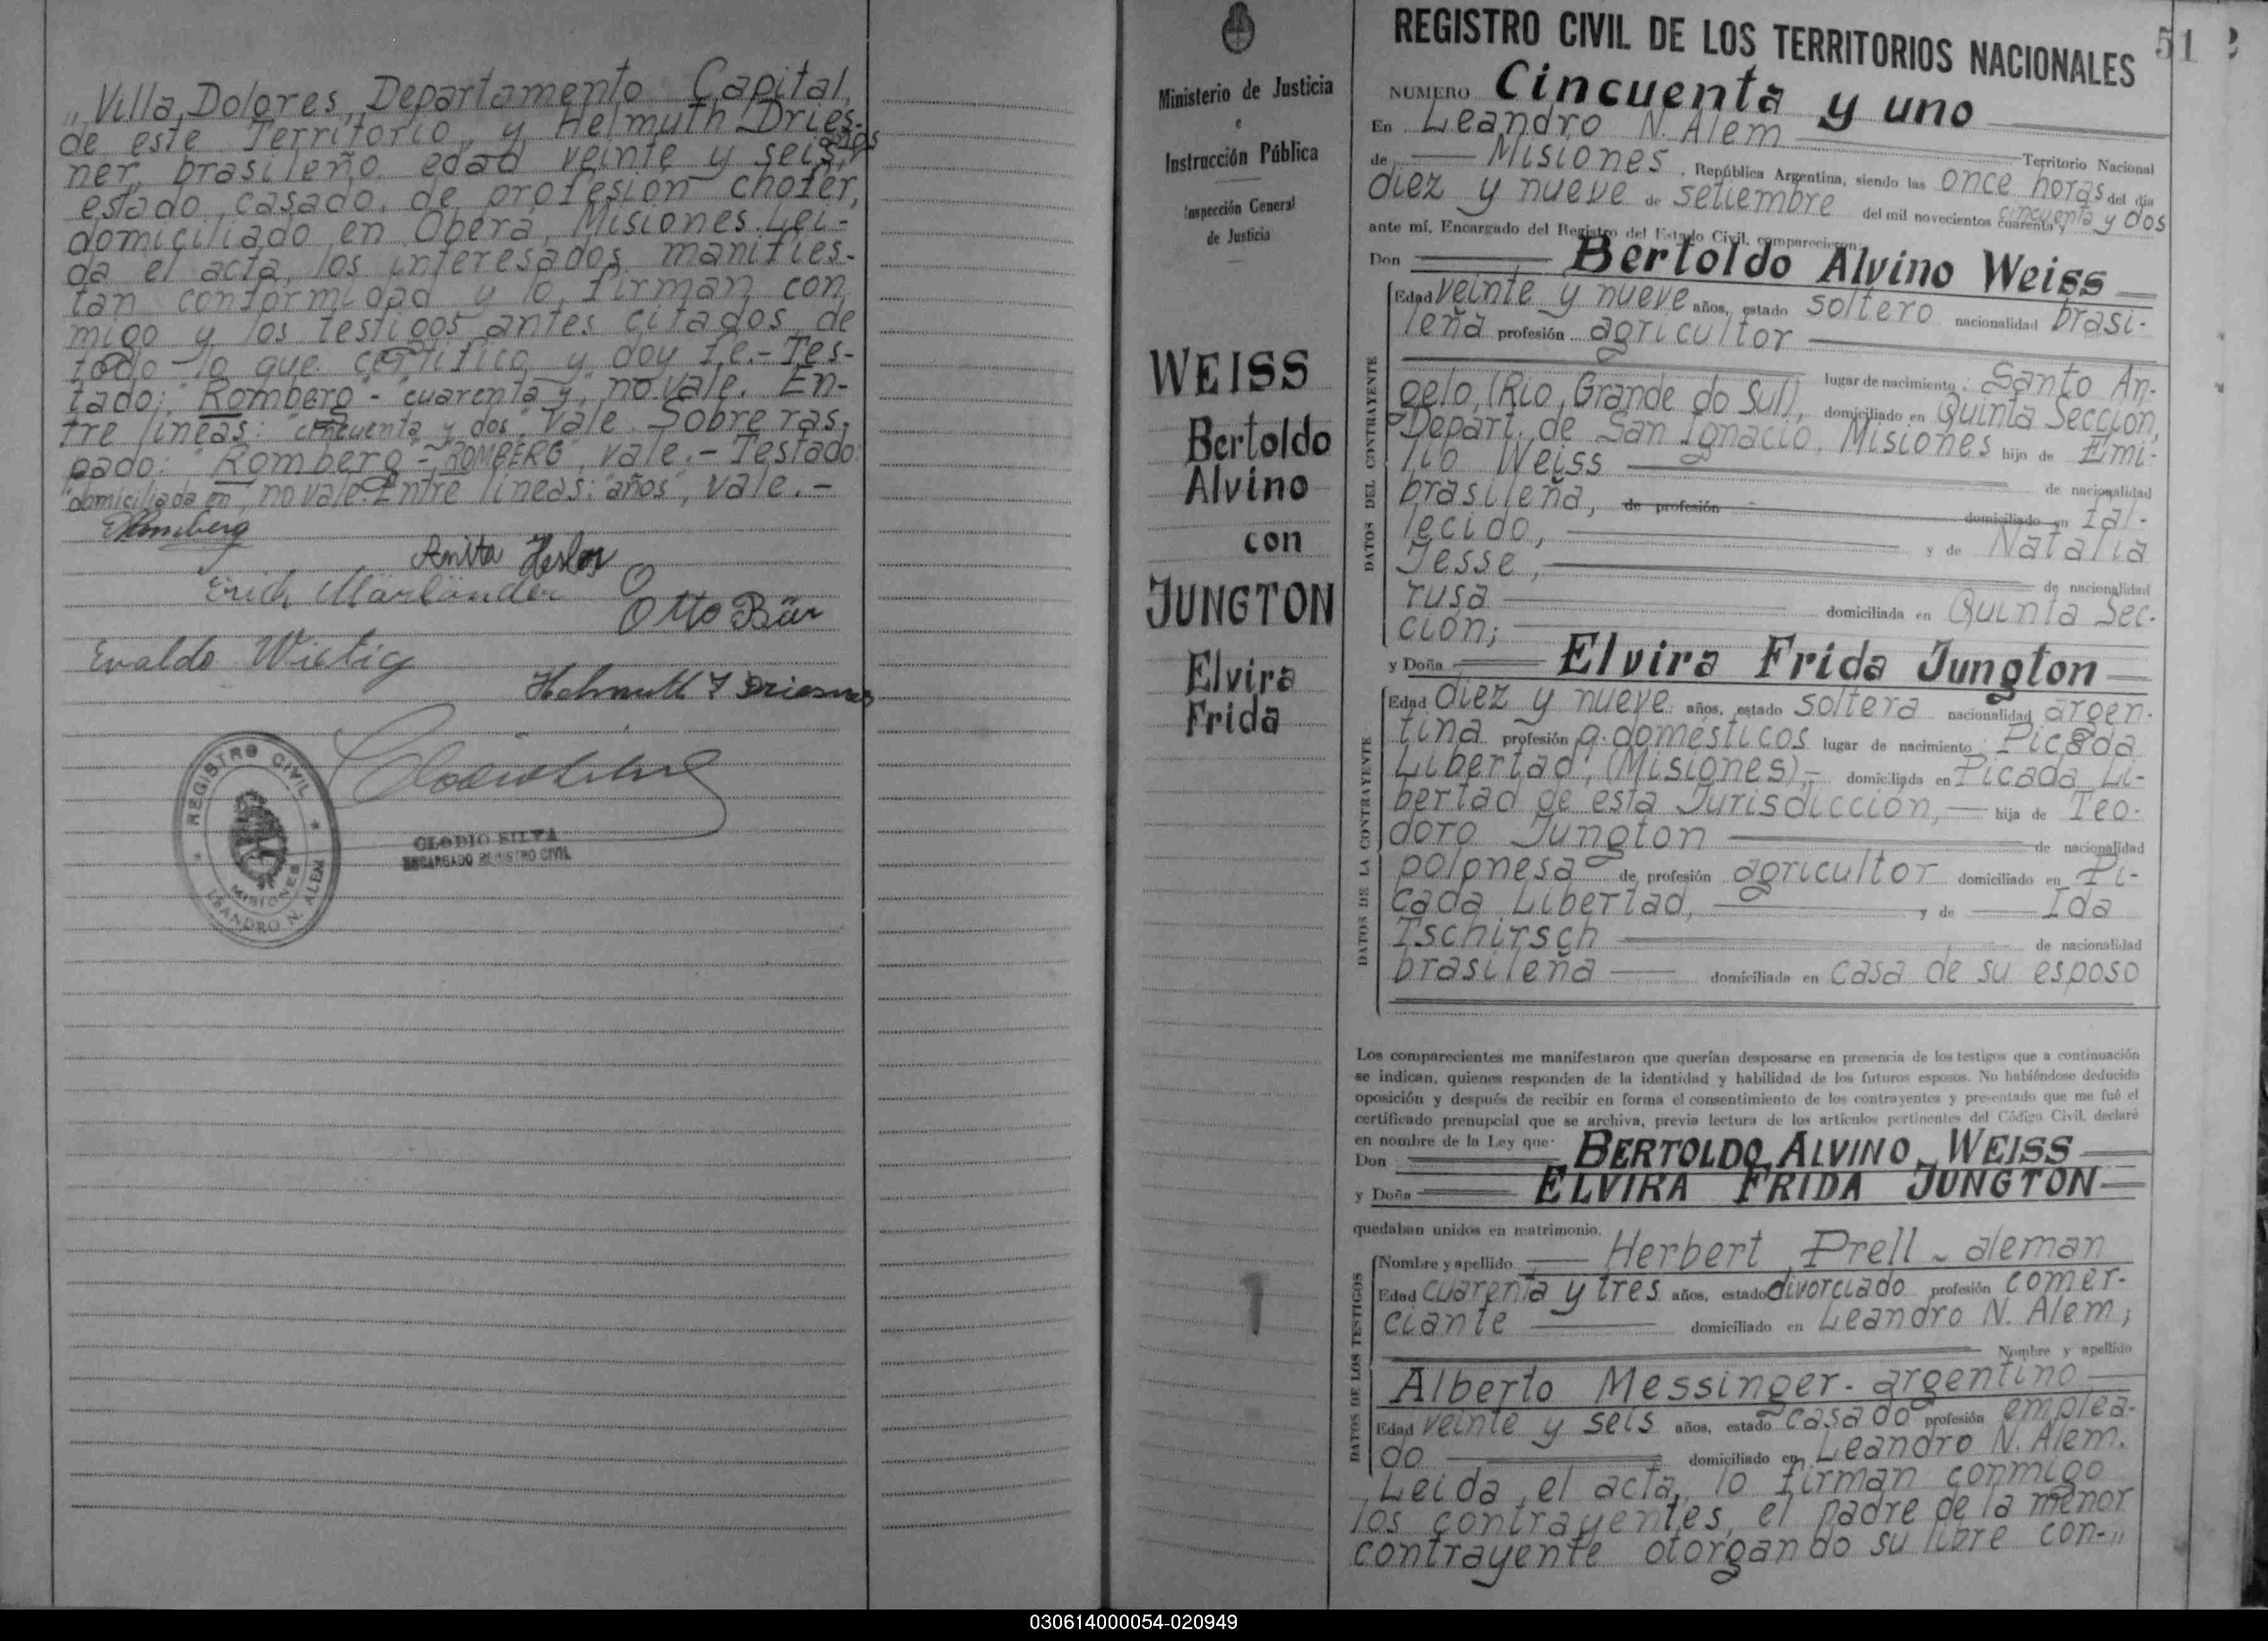 „ Villa Dolores, Departamento Capital,
de este Territorio, y Helmuth Dries-
ner, brasileño, edad veinte y seis años
estado casado, de profesión chofer,
domiciliado en Oberá, Misiones. Leí-
da el acta, los interesados manifies-
tan conformidad y lo firman con
migo y los testigos antes citados, de
todo lo que certifico y doy fe.- Tes-
tado: "Romberg" - "cuarenta y" no vale. En-
tre líneas: "cincuenta y dos" Vale. Sobre ras-
pado: "Romberg - "ROMBERG", vale.- Testado:
"domiciliada en" no vale. Entre líneas: "años", vale.-
ERomberg
Anita
Erich Marländer
Otto Bär
Evaldo Wietig
Helmuth Driesner
REGISTRO CIVIL
MISIONES
LEANDRO N. ALEM
CLODIO SILVA
ENCARGADO REGISTRO CIVIL
Ministerio de Justicia
e
Instrucción Pública
Inspección General
de Justicia
WEISS
Bertoldo
Alvino
con
JUNGTON
Elvira
Frida
1
REGISTRO CIVIL DE LOS TERRITORIOS NACIONALES
51
NUMERO Cincuenta y uno
En Leandro N. Alem Territorio Nacional
de Misiones, República Argentina, siendo las once horas del día
diez y nueve de setiembre del mil novecientos cuarenta y cincuenta y dos
ante mí, Encargado del Registro del Estado Civil, comparecieron:
Don Bertoldo Alvino Weiss
DATOS DEL CONTRAYENTE
Edad veinte y nueve años, estado soltero nacionalidad brasi-
leña profesión agricultor
lugar de nacimiento Santo An-
gelo, (Rio Grande do Sul), domiciliado en Quinta Sección,
Depart. de San Ignacio, Misiones hijo de Emi-
lio Weiss de nacionalidad
brasileña, de profesión domiciliado en fal-
lecido, y de Natalia
Jesse, de nacionalidad
rusa domiciliada en Quinta Sec-
ción;
y Doña Elvira Frida Jungton
DATOS DE LA CONTRAYENTE
Edad diez y nueve años, estado soltera nacionalidad argen-
tina profesión q. domésticos lugar de nacimiento Picada
Libertad, (Misiones),- domiciliada en Picada Li-
bertad de esta Jurisdicción, hija de Teo-
doro Jungton de nacionalidad
polonesa de profesión agricultor domiciliado en Pi-
cada Libertad, y de Ida
Tschirsch de nacionalidad
brasileña domiciliada en casa de su esposo
Los comparecientes me manifestaron que querían desposarse en presencia de los testigos que a continuación
se indican, quienes responden de la identidad y habilidad de los futuros esposos. No habiéndose deducido
oposición y después de recibir en forma el consentimiento de los contrayentes y presentado que me fué el
certificado prenupcial que se archiva, previa lectura de los artículos pertinentes del Código Civil, declaré
en nombre de la Ley que:
Don BERTOLDO ALVINO WEISS
y Doña ELVIRA FRIDA JUNGTON
quedaban unidos en matrimonio.
DATOS DE LOS TESTIGOS
Nombre y apellido Herbert Prell - aleman
Edad cuarenta y tres años, estado divorciado profesión comer-
ciante domiciliado en Leandro N. Alem;
Nombre y apellido
Alberto Messinger - argentino
Edad veinte y seis años, estado casado profesión emplea-
do domiciliado en Leandro N. Alem.
Leida el acta, lo firman conmigo
los contrayentes, el padre de la menor
contrayente otorgando su libre con-„
030614000054-020949